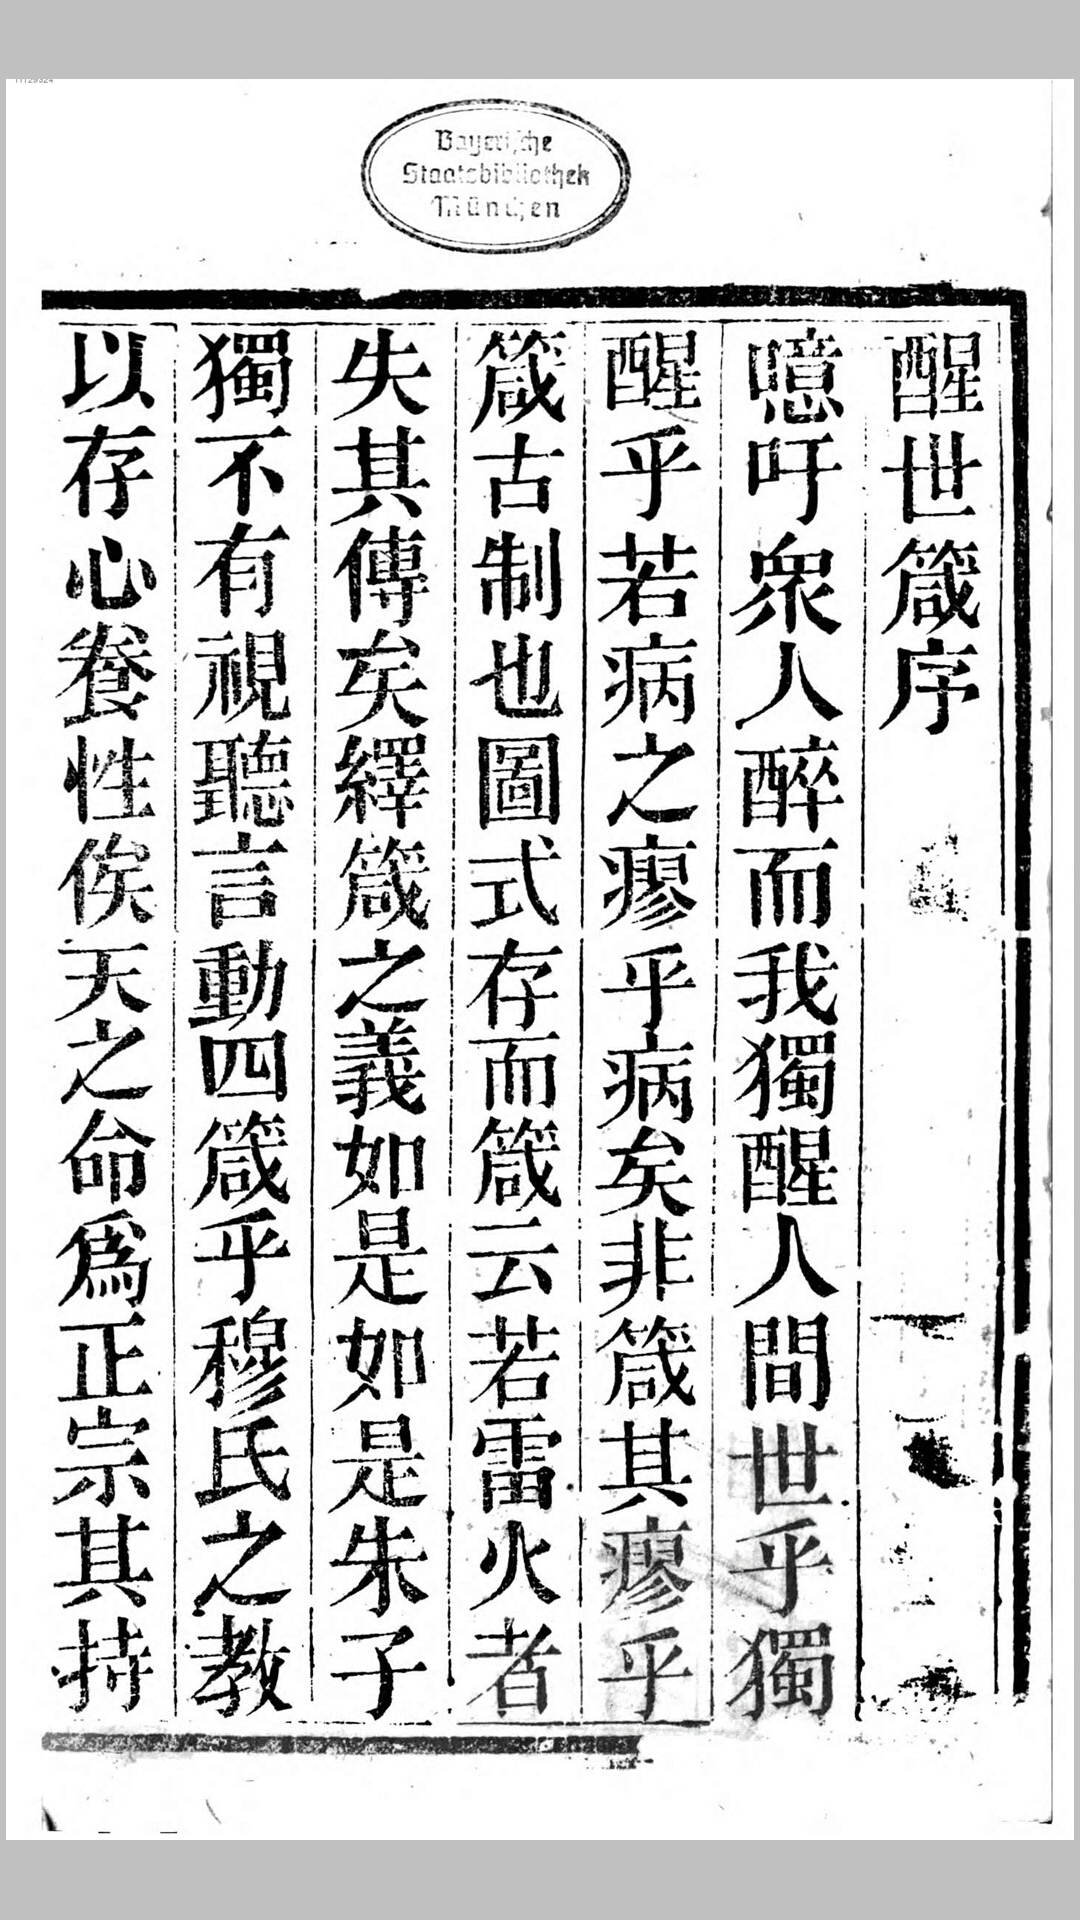 11129324
Bayerische
Staatsbibliothek
München
醒世箴序
噫吁衆人醉而我獨醒人間世乎獨
醒乎若病之瘳乎病矣非箴其瘳乎
箴古制也圖式存而箴云若雷火者
失其傳矣繹箴之義如是如是朱子
獨不有視聽言動四箴乎穆氏之教
以存心養性俟天之命爲正宗其持